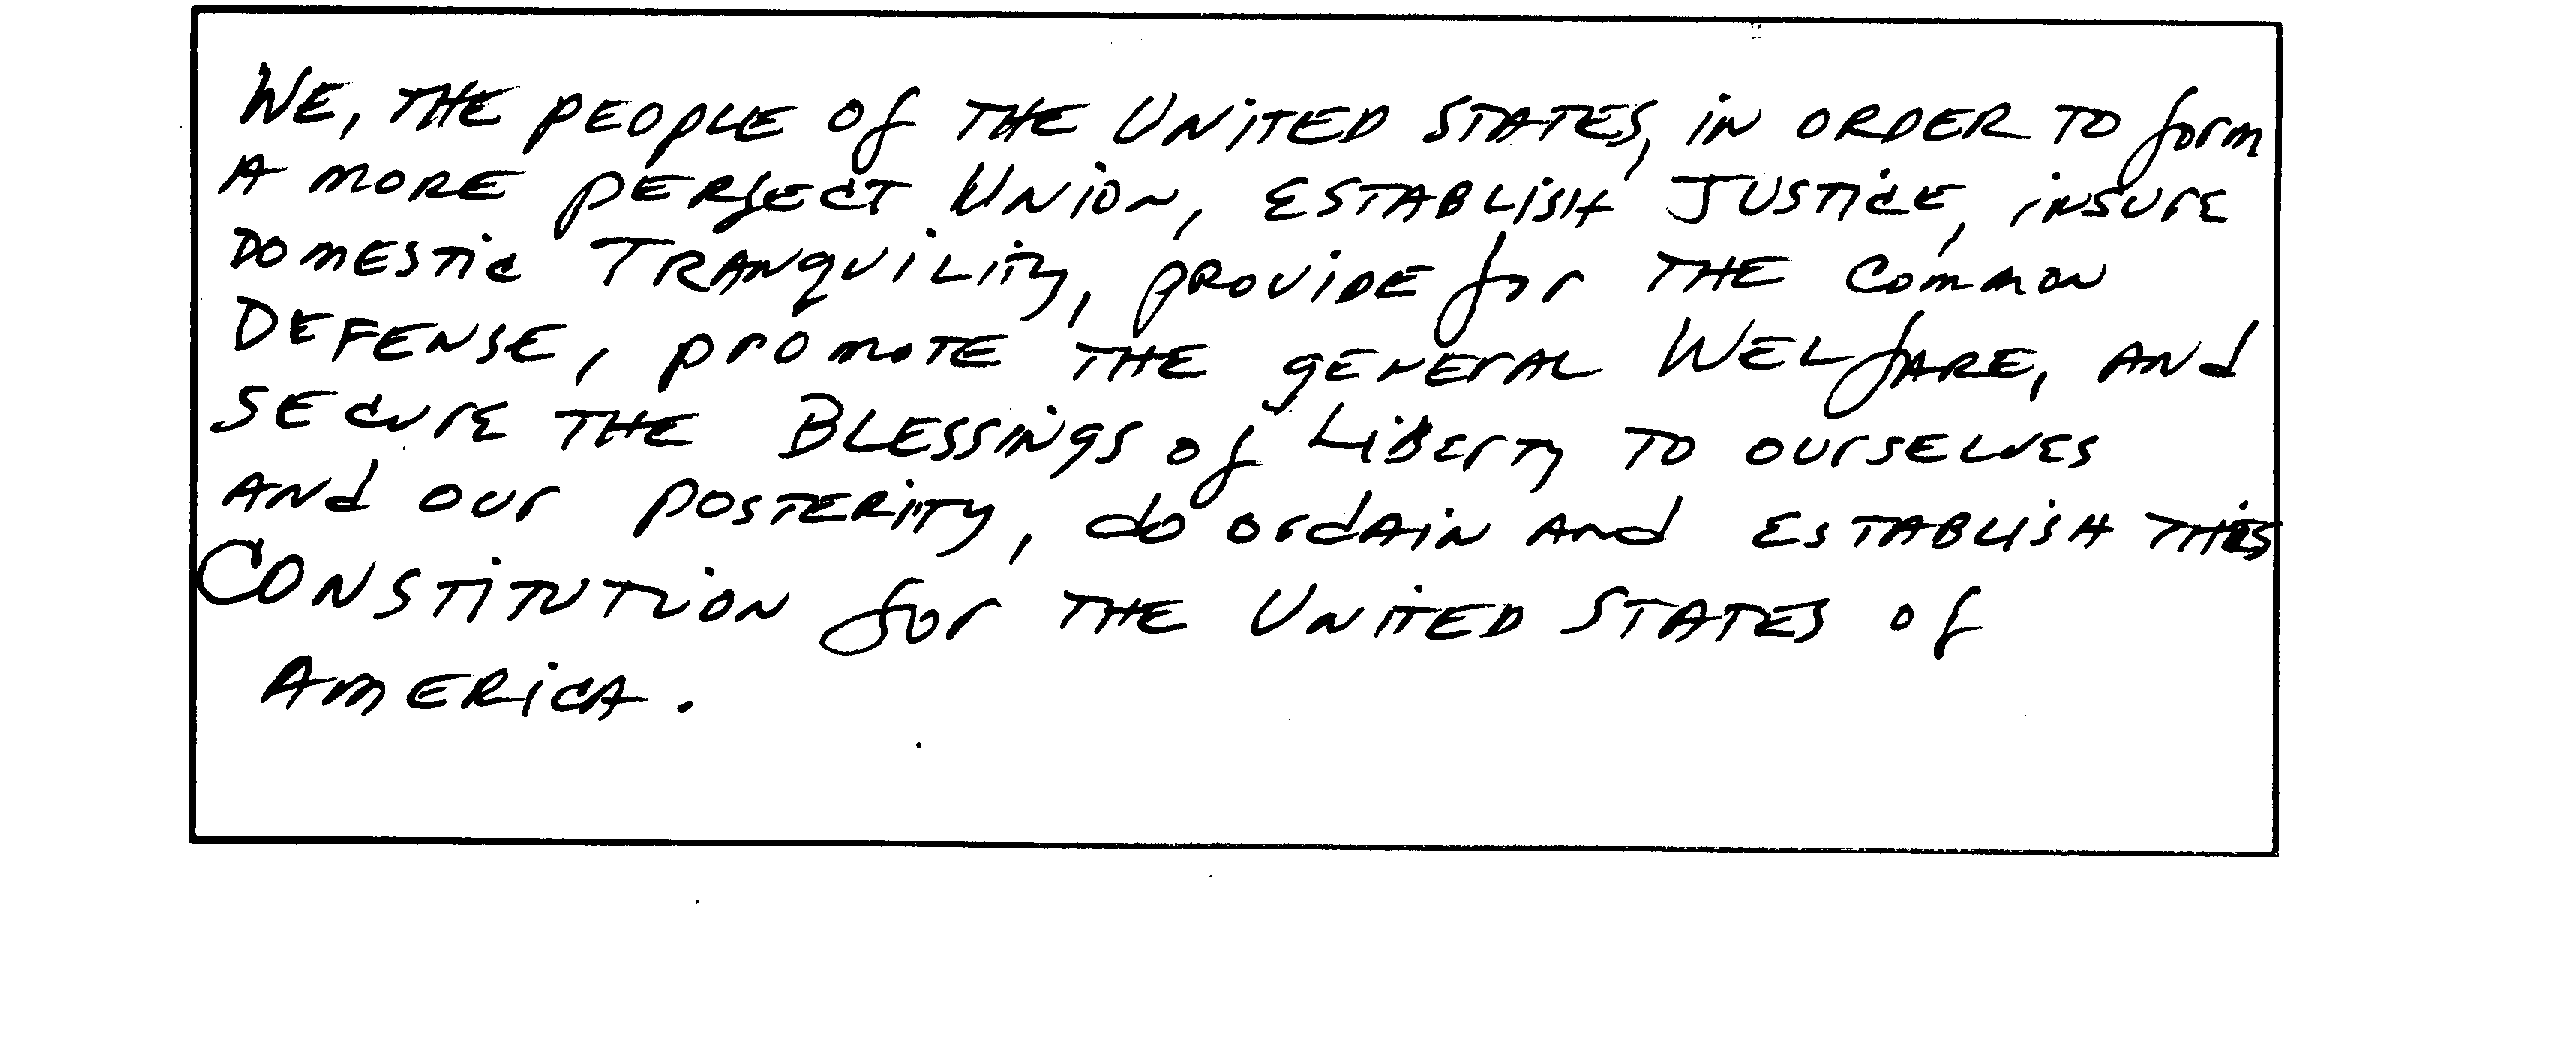 We, the people of the United States, in order to form
a more perfect Union, establish Justice, insure
domestic Tranquility, provide for the common
Defense, promote the general Welfare, and
secure the Blessings of Liberty to ourselves
and our posterity, do ordain and establish this
Constitution for the United States of
America.